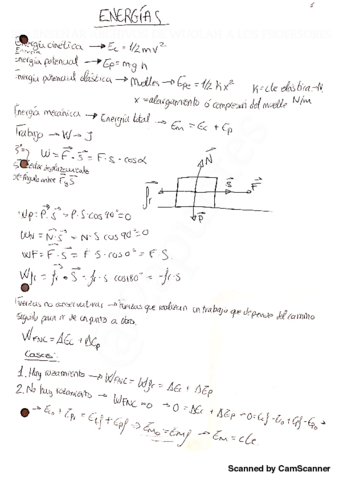 ENERGÍAS
Energía cinética → Ec = 1/2 m v²
Energía potencial → Ep = m g h
Energía potencial elástica → Muelles → Epe = 1/2 K x² K = cte elástica → N/m
x = alargamiento o compresión del muelle
Energía mecánica → Energía total → Em = Ec + Ep
Trabajo → W → J
W = F · S = F · S · cosα
α = ángulo entre F y S
N
fr S F
P
Wp = P · S = P · S · cos 90° = 0
WN = N · S = N · S cos 90° = 0
WF = F · S = F · S · cos 0° = F S.
Wfr = fr · S = fr · S cos 180° = -fr · S
Fuerzas no conservativas → Fuerzas que realizan un trabajo que depende del camino
seguido para ir de un punto a otro.
WFNC = ΔEc + ΔEp
Casos:
1. Hay rozamiento → WFNC = Wfr = ΔEc + ΔEp
2. No hay rozamiento → WFNC = 0 → 0 = ΔEc + ΔEp → 0 = Ecf - Eco + Epf - Epo →
→ Eco + Epo = Ecf + Epf → Emo = Emf → Em = cte
Scanned by CamScanner